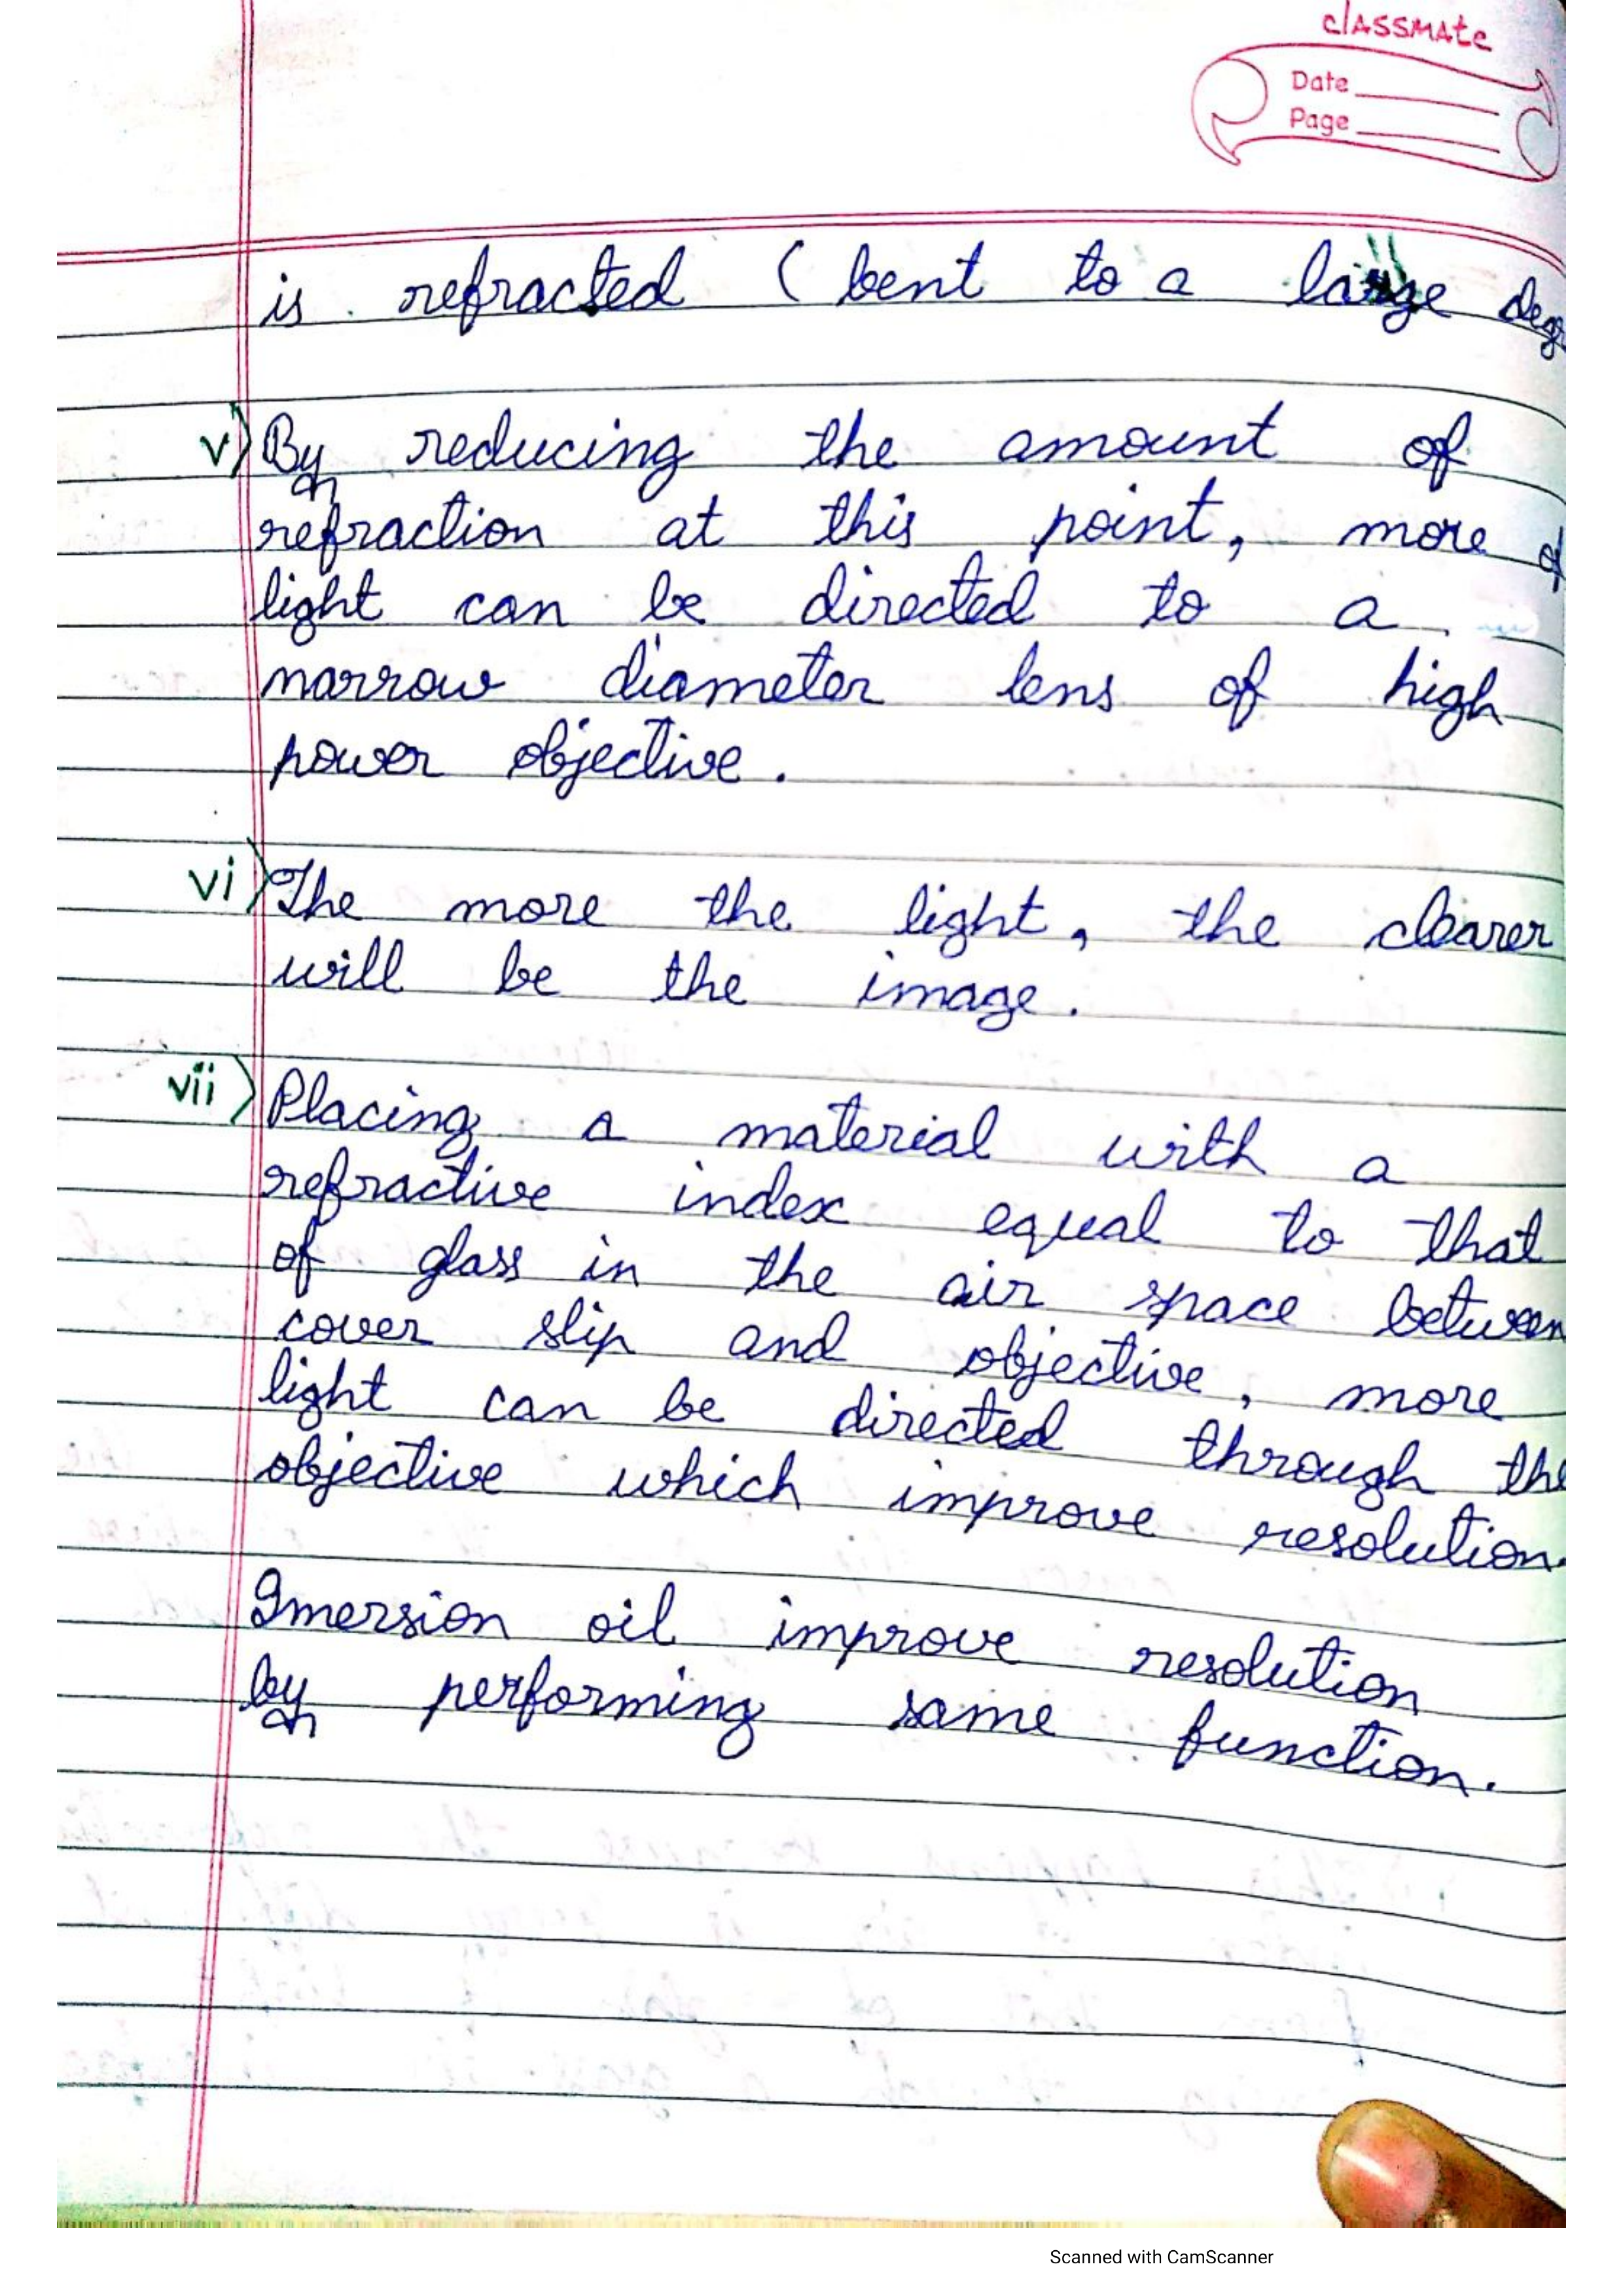 classmate
Date
Page
is refracted (bent to a large deg
v) By reducing the amount of
refraction at this point, more of
light can be directed to a
narrow diameter lens of high
power objective.
vi) The more the light, the clearer
will be the image.
vii) Placing a material with a
refractive index equal to that
of glass in the air space between
cover slip and objective, more
light can be directed through the
objective which improve resolution.
Imersion oil improve resolution
by performing same function.
Scanned with CamScanner